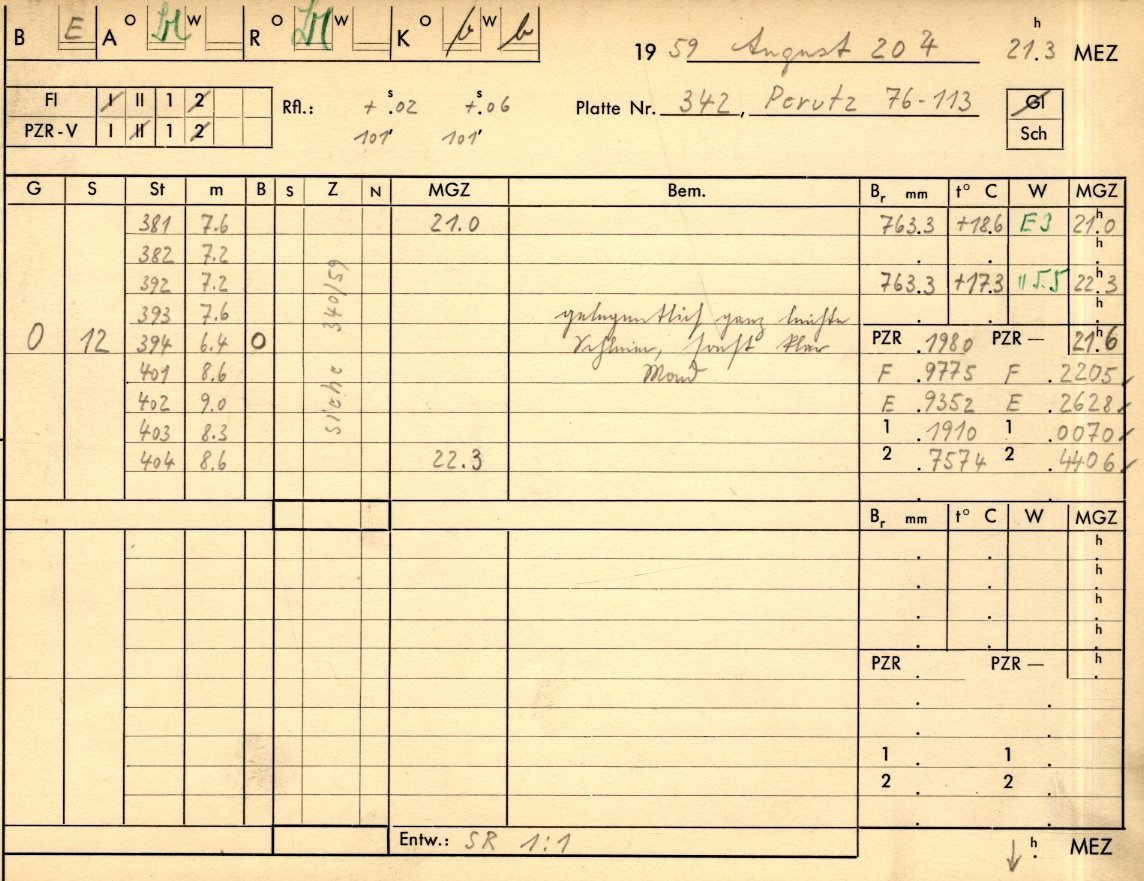 B E A O W R O W K O b W b
19 59 August 20 h 21.3 MEZ
FI I II 1 2 Rfl.: + s.02 + s.06 Platte Nr. 342, Perutz 76-113 Gl
PZR-V I II 1 2 101' 101' Sch
G S St m B S Z N MGZ Bem. Br mm t° C W MGZ
381 7.6 21.0 763.3 +18.6 E3 21h.0
382 7.2 h
392 7.2 763.3 +17.3 22h.3
393 7.6 gelegentlich ganz leichte h
0 12 394 6.4 O siehe 340/59 Schleier, sonst klar PZR .1980 PZR – 21h.6
401 8.6 Mond F .9775 F .2205
402 9.0 E .9352 E .2628
403 8.3 1 .1910 1 .0070
404 8.6 22.3 2 .7574 2 .4406
Br mm t° C W MGZ
h
h
h
h
PZR PZR – h
1 1
2 2
Entw.: SR 1:1
h MEZ